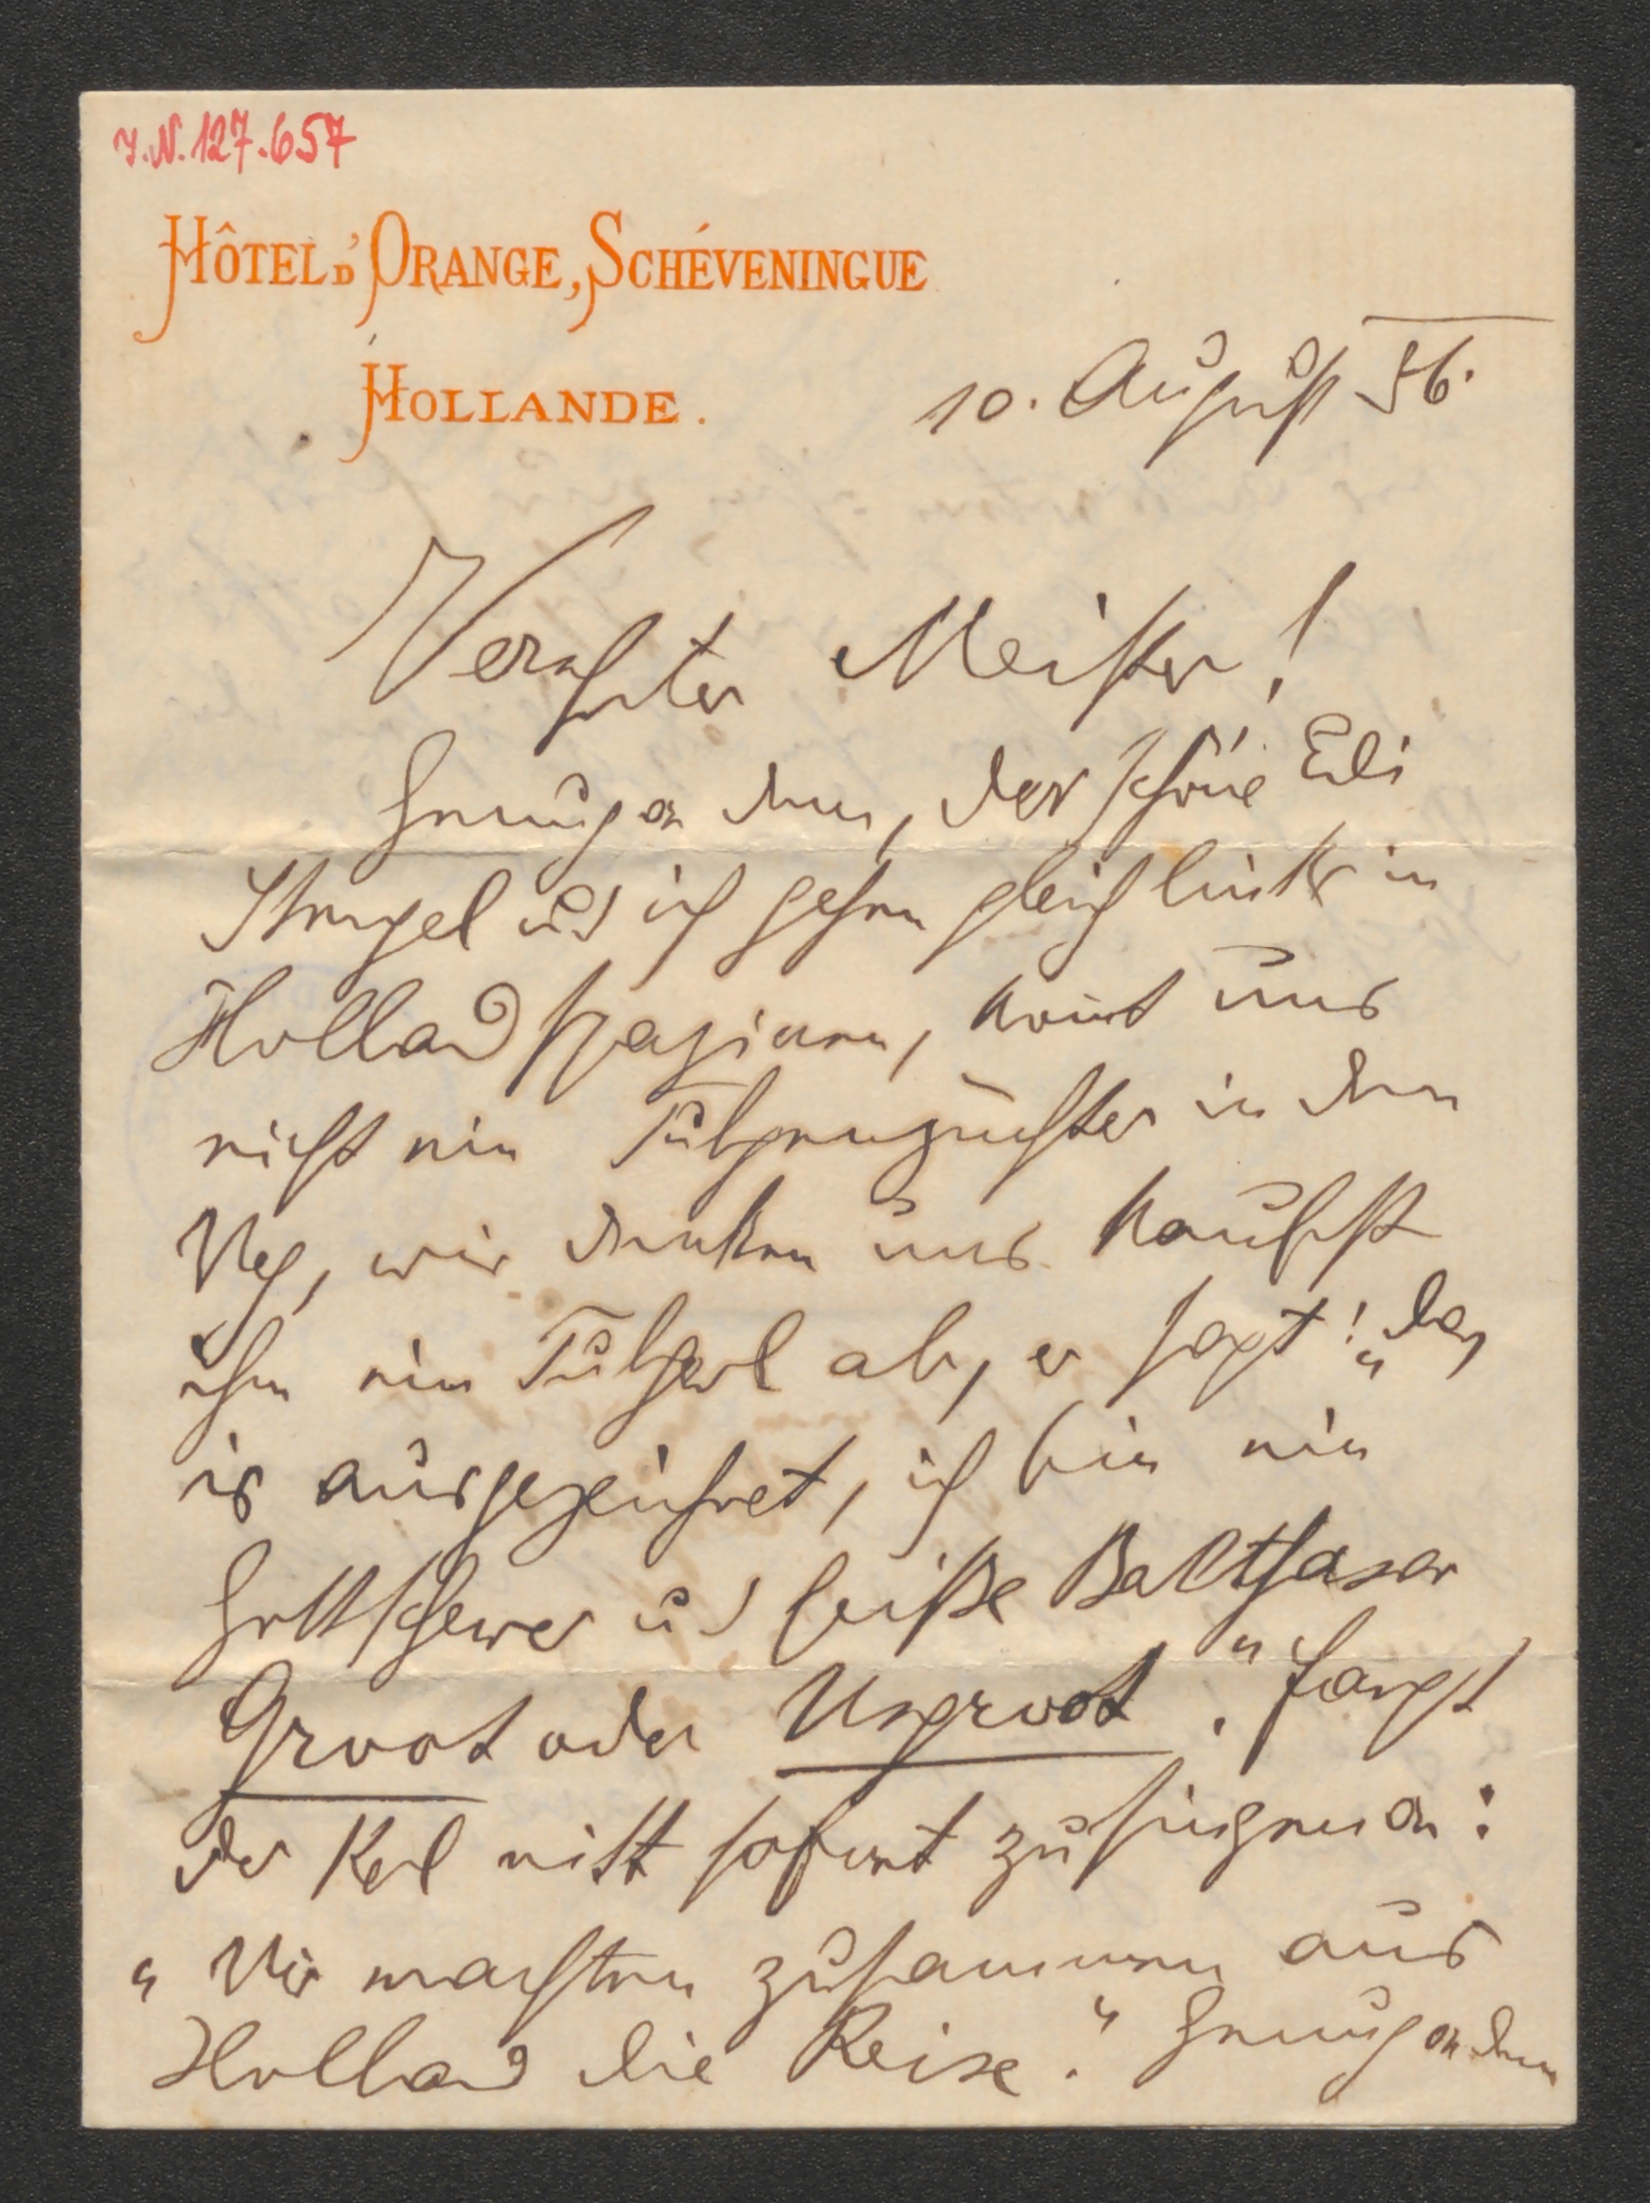 J.N. 127.657
HÔTEL D'ORANGE, SCHÉVENINGUE
HOLLANDE.
10. August 86.
Verehrter Meister!
Genug an dem, der schöne Edi
Strugel und ich gehen gleich links in
Holland spazieren, komt uns
nicht ein Tulpenzüchter in den
Weg, wir denken uns kaufst
ihm ein Tulperl ab, er sagt: „das
is ausgezeichnet, ich bin ein
Gottschewer und heiße Balthasar
Groot oder Ungroot." fangt
der Kerl nitt sofort zu singen an:
„Wir machten zusammen aus
Holland die Reise." Genug an dem